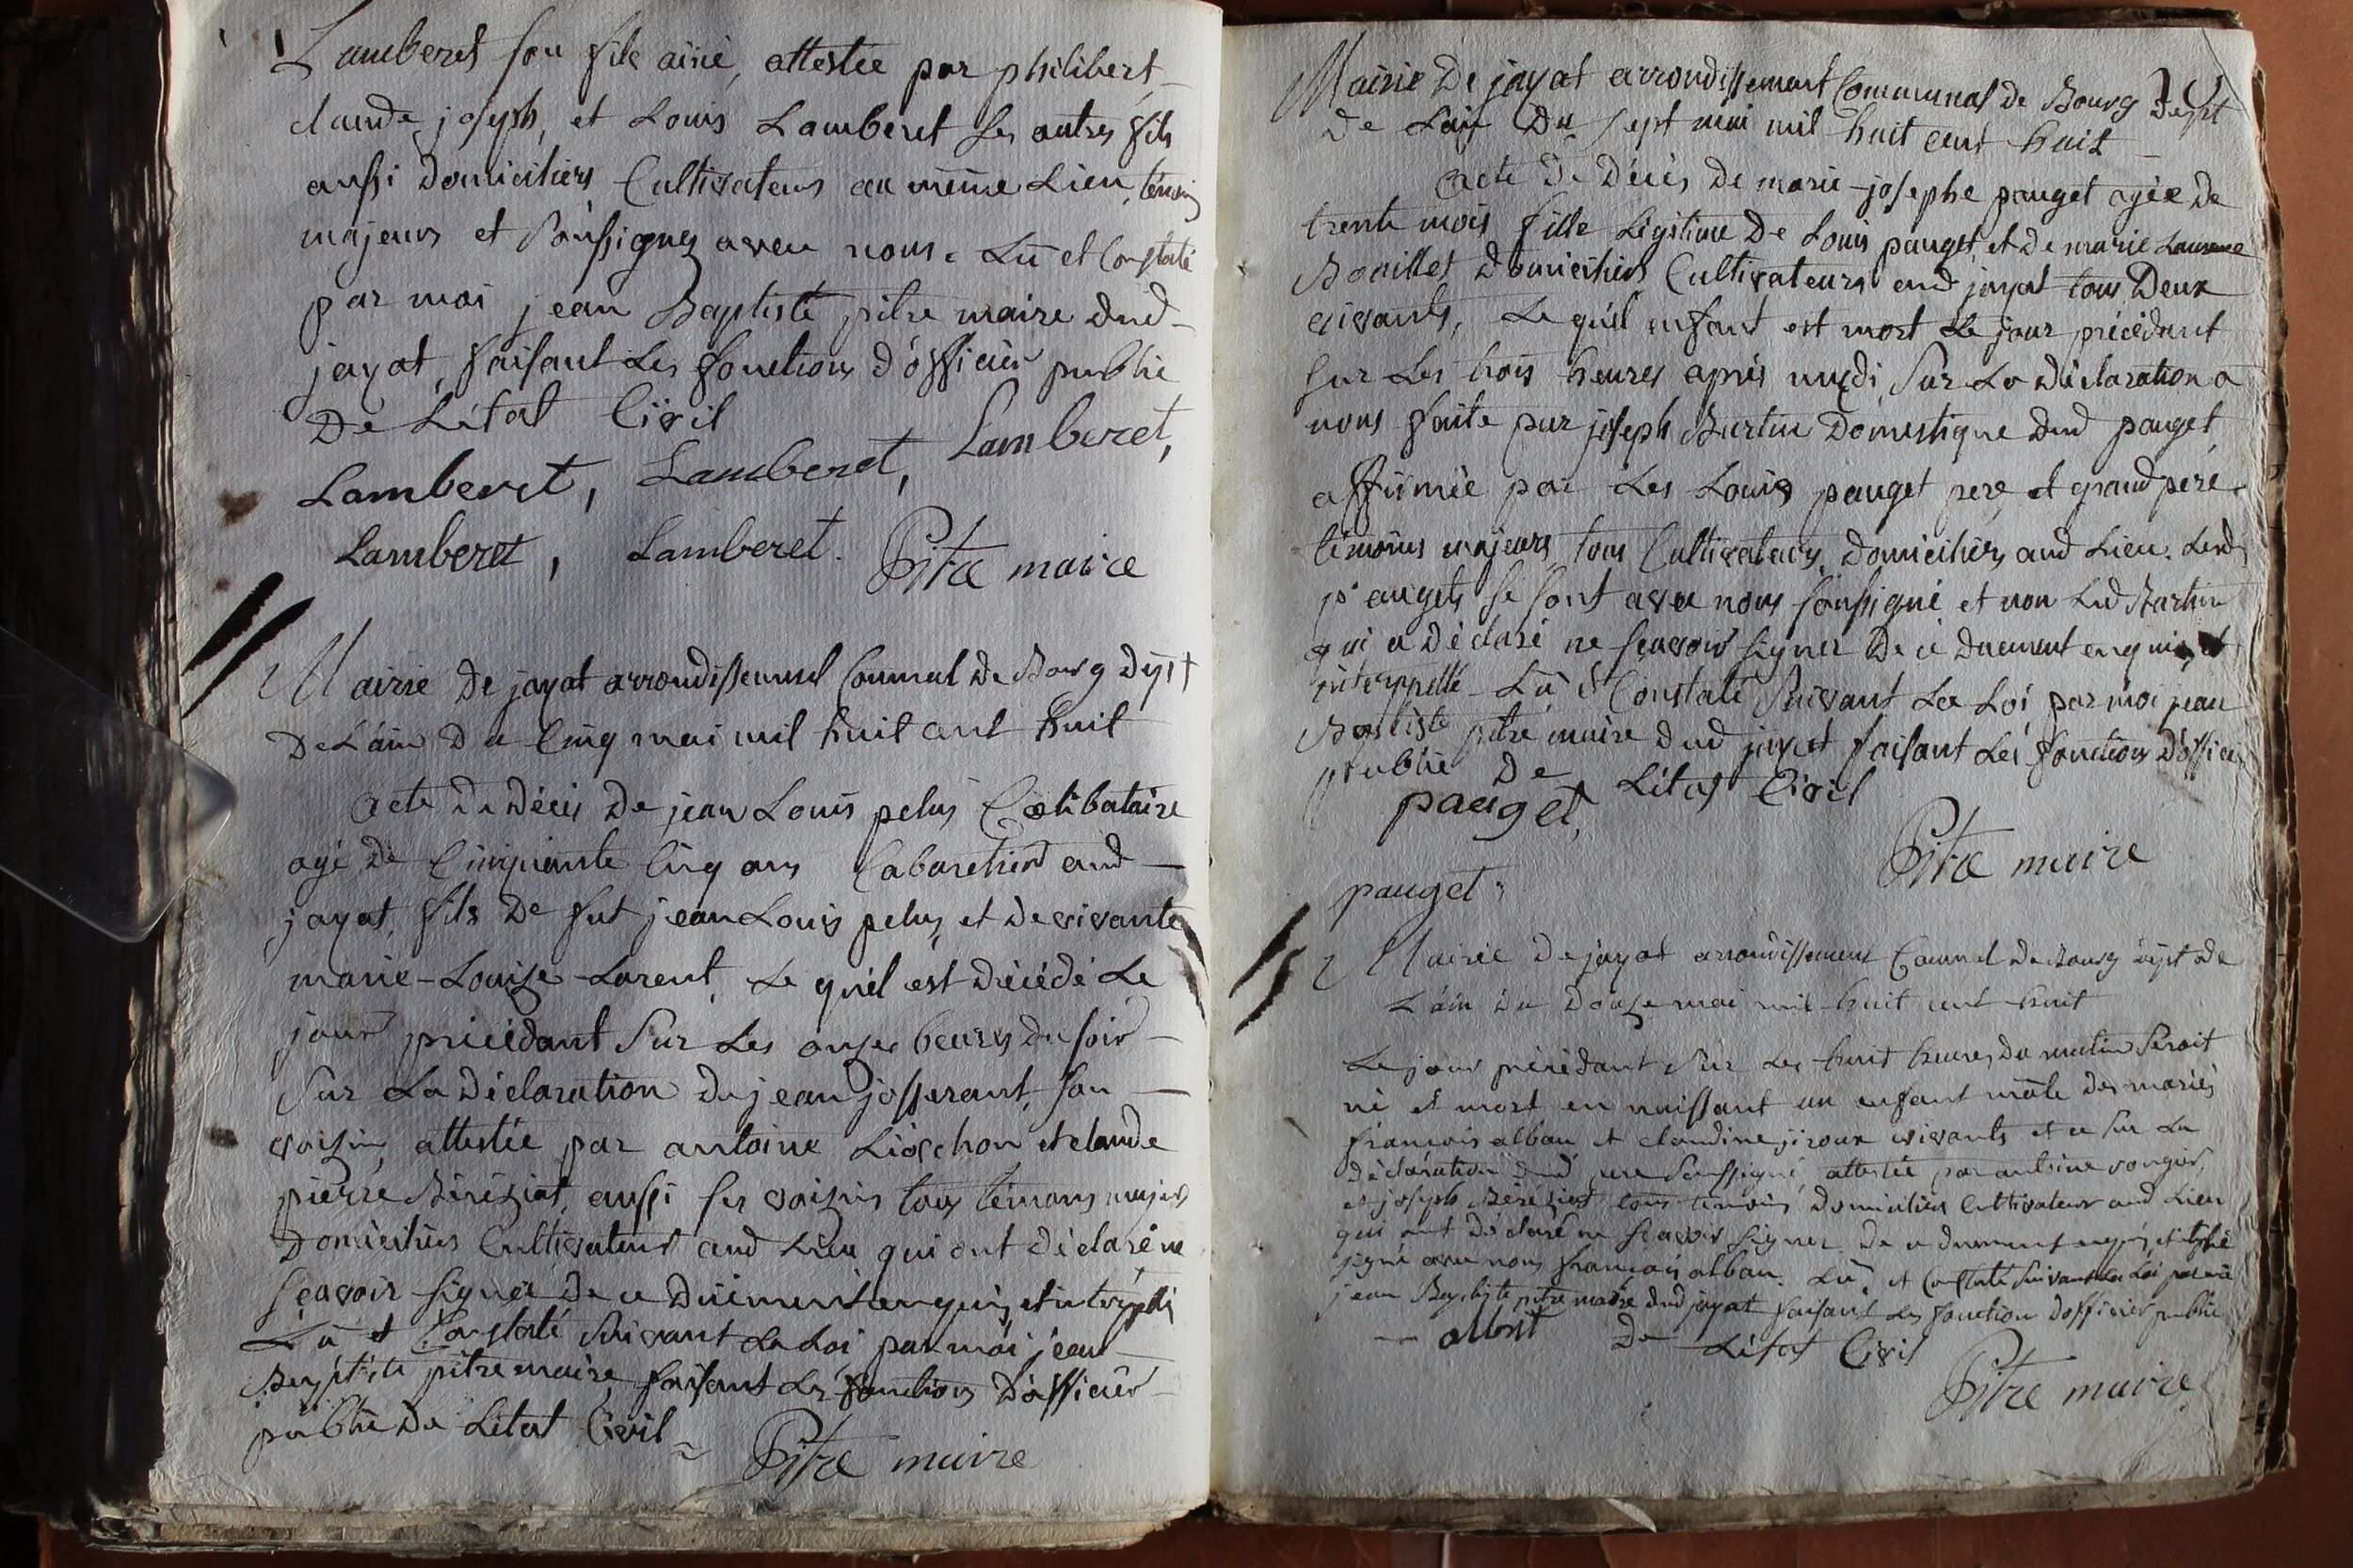 Lamberet son fils ainé, attestée par philibert
claude, joseph, et Louis Lamberet ses autres fils
aussi domiciliers Cultivateurs au même Lieu, témoins
majeurs et soussignes avec nous. Lû et Constaté
par moi jean Baptiste pitre maire dud
jayat, faisant Les fonctions d'officier public
De L'état Civil
Lamberet, Lamberet, Lamberet,
Lamberet, Lamberet. Pitre maire
Mairie De jayat arrondissement Communal De Bourg Dépt
De L'ain Du Cinq mai mil huit cent huit
Acte De Décès De jean Louis pelus Célibataire
agé De Cinquante Cinq ans Cabaretier aud
jayat, fils De fut jean Louis pelus, et De vivante
marie-Louise Lorent, Le quél est Décédé Le
jour précédant Sur Les onze heures du soir
Sur La Déclaration De jean josserant, son
voisin, attestée par antoine Liochon et claude
pierre Béréziat, aussi ses voisins tous témoins majeurs
Domiciliers Cultivateurs aud Lieu qui ont déclaré ne
sçavoir signer De ce Dûement enquis, et interpellé
Lû et Constaté Suivant La Loi par moi jean
Baptiste pitre maire, faisant Les fonctions D'officier
public De L'état Civil
Pitre maire
Mairie De jayat arrondissement Communal De Bourg Dépt
De L'ain Du sept mai mil huit cent huit
Acte De Décès De marie-josephe pauget agée De
trente mois fille Légitime De Louis pauget, et De marie Laurence
Bouillet Domiciliers Cultivateurs aud jayat tous Deux
vivants, Le quél enfant est mort Le jour précédant
sur Les trois heures après midi, Sur La Déclaration a
nous faite par joseph Burtin Domestique dud pauget,
affirmée par Les Louis pauget père, et grand père
témoins majeurs, tous Cultivateurs, Domiciliers aud Lieu. Lesd
paugets se sont avec nous soussigné et non Led Burtin
qui a Déclaré ne sçavoir signer De ce Duement enquis, et
interppellé Lû et Constaté Suivant La Loi par moi jean
Baptiste pitre maire dud jayat faisant Les fonctions D'officier
public De L'état Civil
pauget,
Pitre maire
pauget,
Mairie De jayat arrondissement Communal De Bourg dépt De
L'ain Du Douze mai mil huit cent huit
Le jour précédant Sur Les huit heures du matin Seroit
né et mort en naissant un enfant mâle des mariés
françois alban et claudine jiroux vivants et ce sur La
Déclaration dud père Soussigné, attestée par antoine vongier,
et joseph Béréziat tous témoins Domiciliers Cultivateurs aud Lieu
qui ont Déclaré ne sçavoir signer De ce duement enquis, et
signé avec nous françois alban. Lû, et Constaté Suivant La Loi par moi
jean Baptiste pitre maire dud jayat faisant Les fonction d'officier public
De L'état Civil
Pitre maire